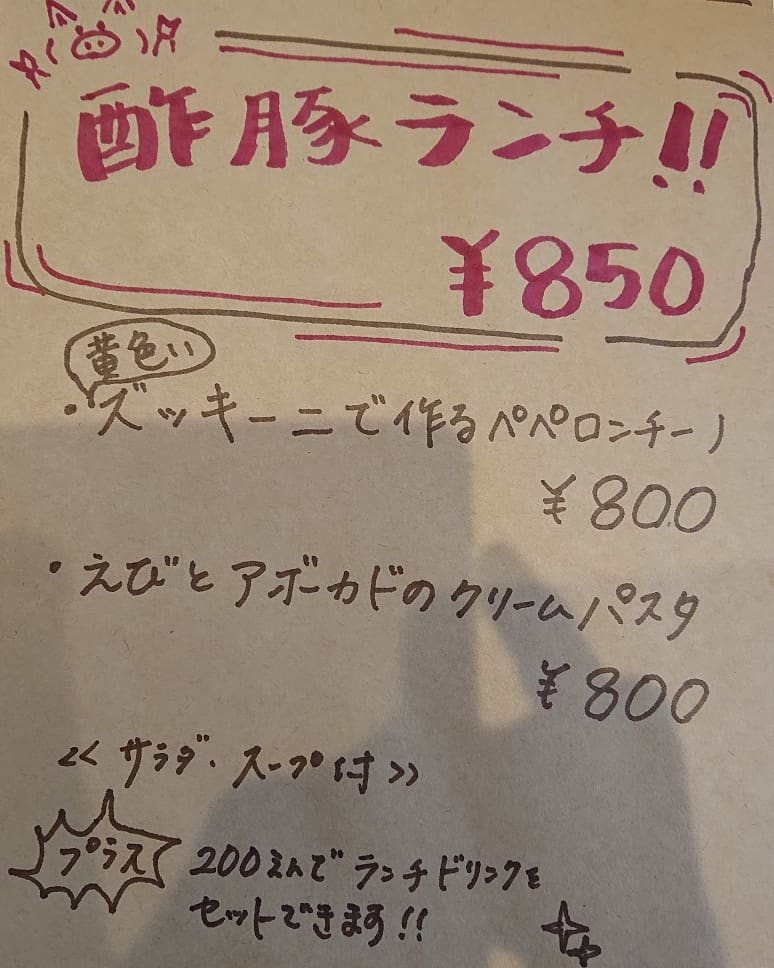 酢豚ランチ!!
¥850
黄色い
・ズッキーニで作るペペロンチーノ
¥800
・えびとアボーカドのクリームパスタ
¥800
<<サラダ・スープ付>>
プラス
200えんでランチドリンクを
セットできます!!